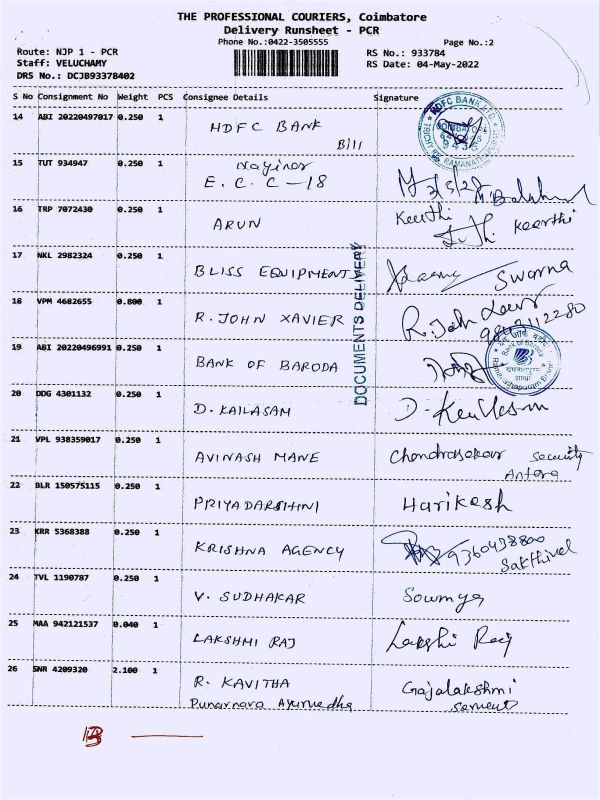 THE PROFESSIONAL COURIERS, Coimbatore
Delivery Runsheet - PCR
Phone No.:0422-3505555
Page No.:2
Route: NJP 1 - PCR
RS No.: 933784
Staff: VELUCHAMY
RS Date: 04-May-2022
DRS No.: DCJB93378402
S No Consignment No Weight PCS Consignee Details Signature
14 ABI 20220497017 0.250 1 HDFC BANK
HDFC BANK LTD.
COIMBATORE
15 TUT 934947 0.250 1
E. C. C - 18
16 TRP 7072430 0.250 1 ARUN Keerthi
Keerthi
17 NKL 2982324 0.250 1 BLISS EQUIPMENTS Swarna
DOCUMENTS DELIVERY
18 VPM 4682655 0.800 1 R. JOHN XAVIER R. John
19 ABI 20220496991 0.250 1 BANK OF BARODA
Bank of Baroda
20 DDG 4301132 0.250 1 D. KAILASAM
21 VPL 938359017 0.250 1 AVINASH MANE Chandrasekar security
Antara
22 BLR 150575115 0.250 1 PRIYADARSHINI Harikesh
23 KRR 5368388 0.250 1 KRISHNA AGENCY 9360438800
Sakthivel
24 TVL 1190787 0.250 1 V. SUDHAKAR Sowmya
25 MAA 942121537 0.040 1 LAKSHMI RAJ Lakshi Raj
26 SNR 4209320 2.100 1 R. KAVITHA Gajalakshmi
Punarnava Ayurvedha